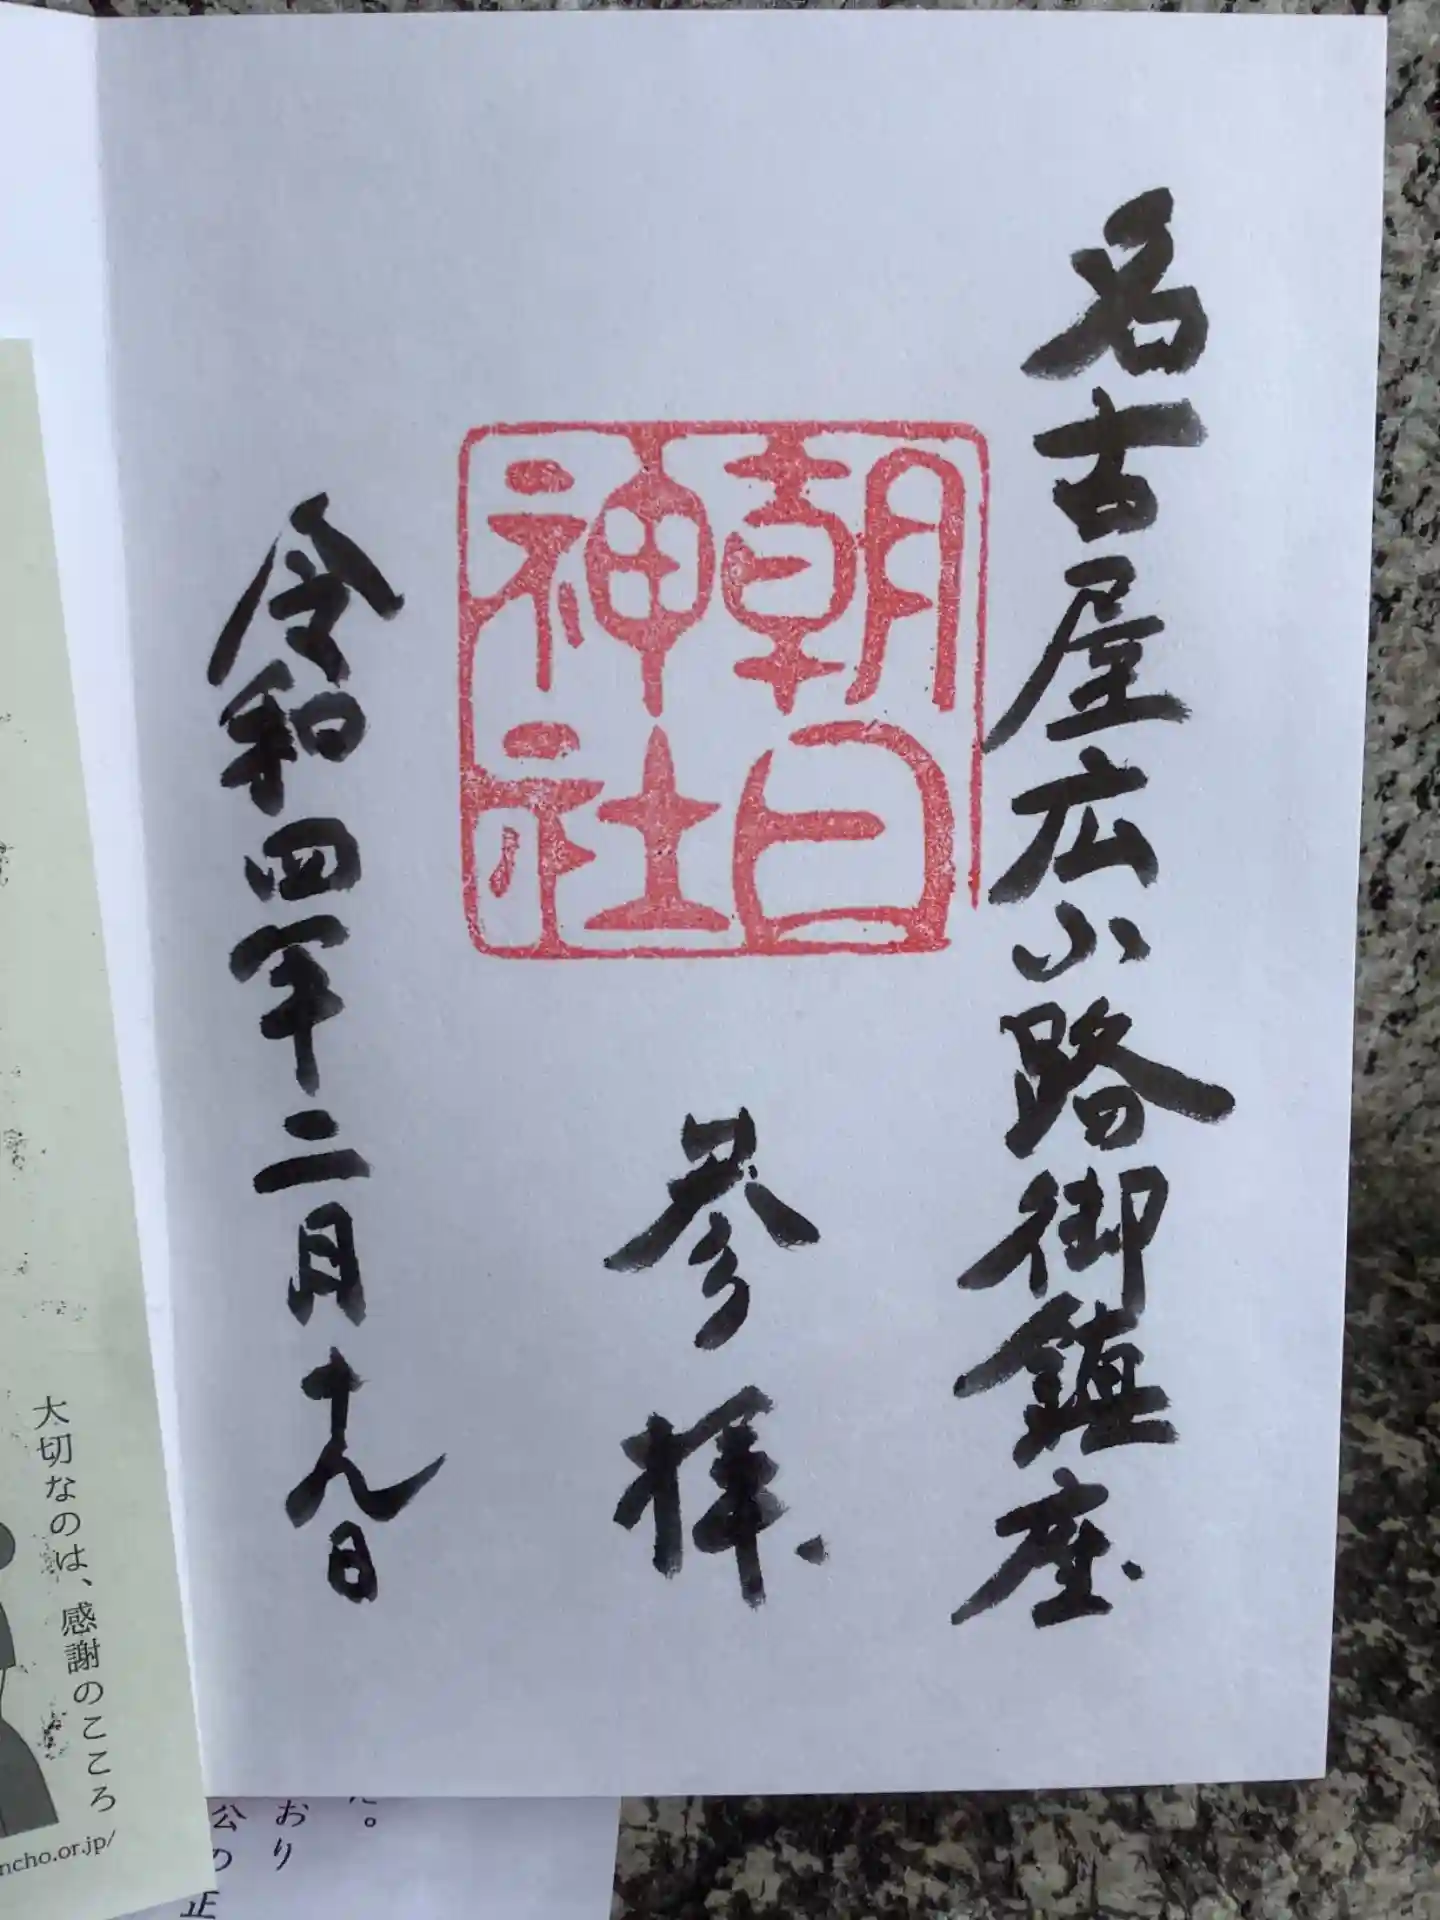 名古屋広小路御鎮座
朝日
神社
参拝
令和四年二月十九日
大切なのは、感謝のこころ
ncho.or.jp/
。
おり
公の
正